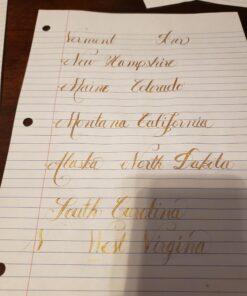 Vermont
New Hampshire
Maine Colorado
Montana California
Alaska North Dakota
South Carolina
N West Virginia